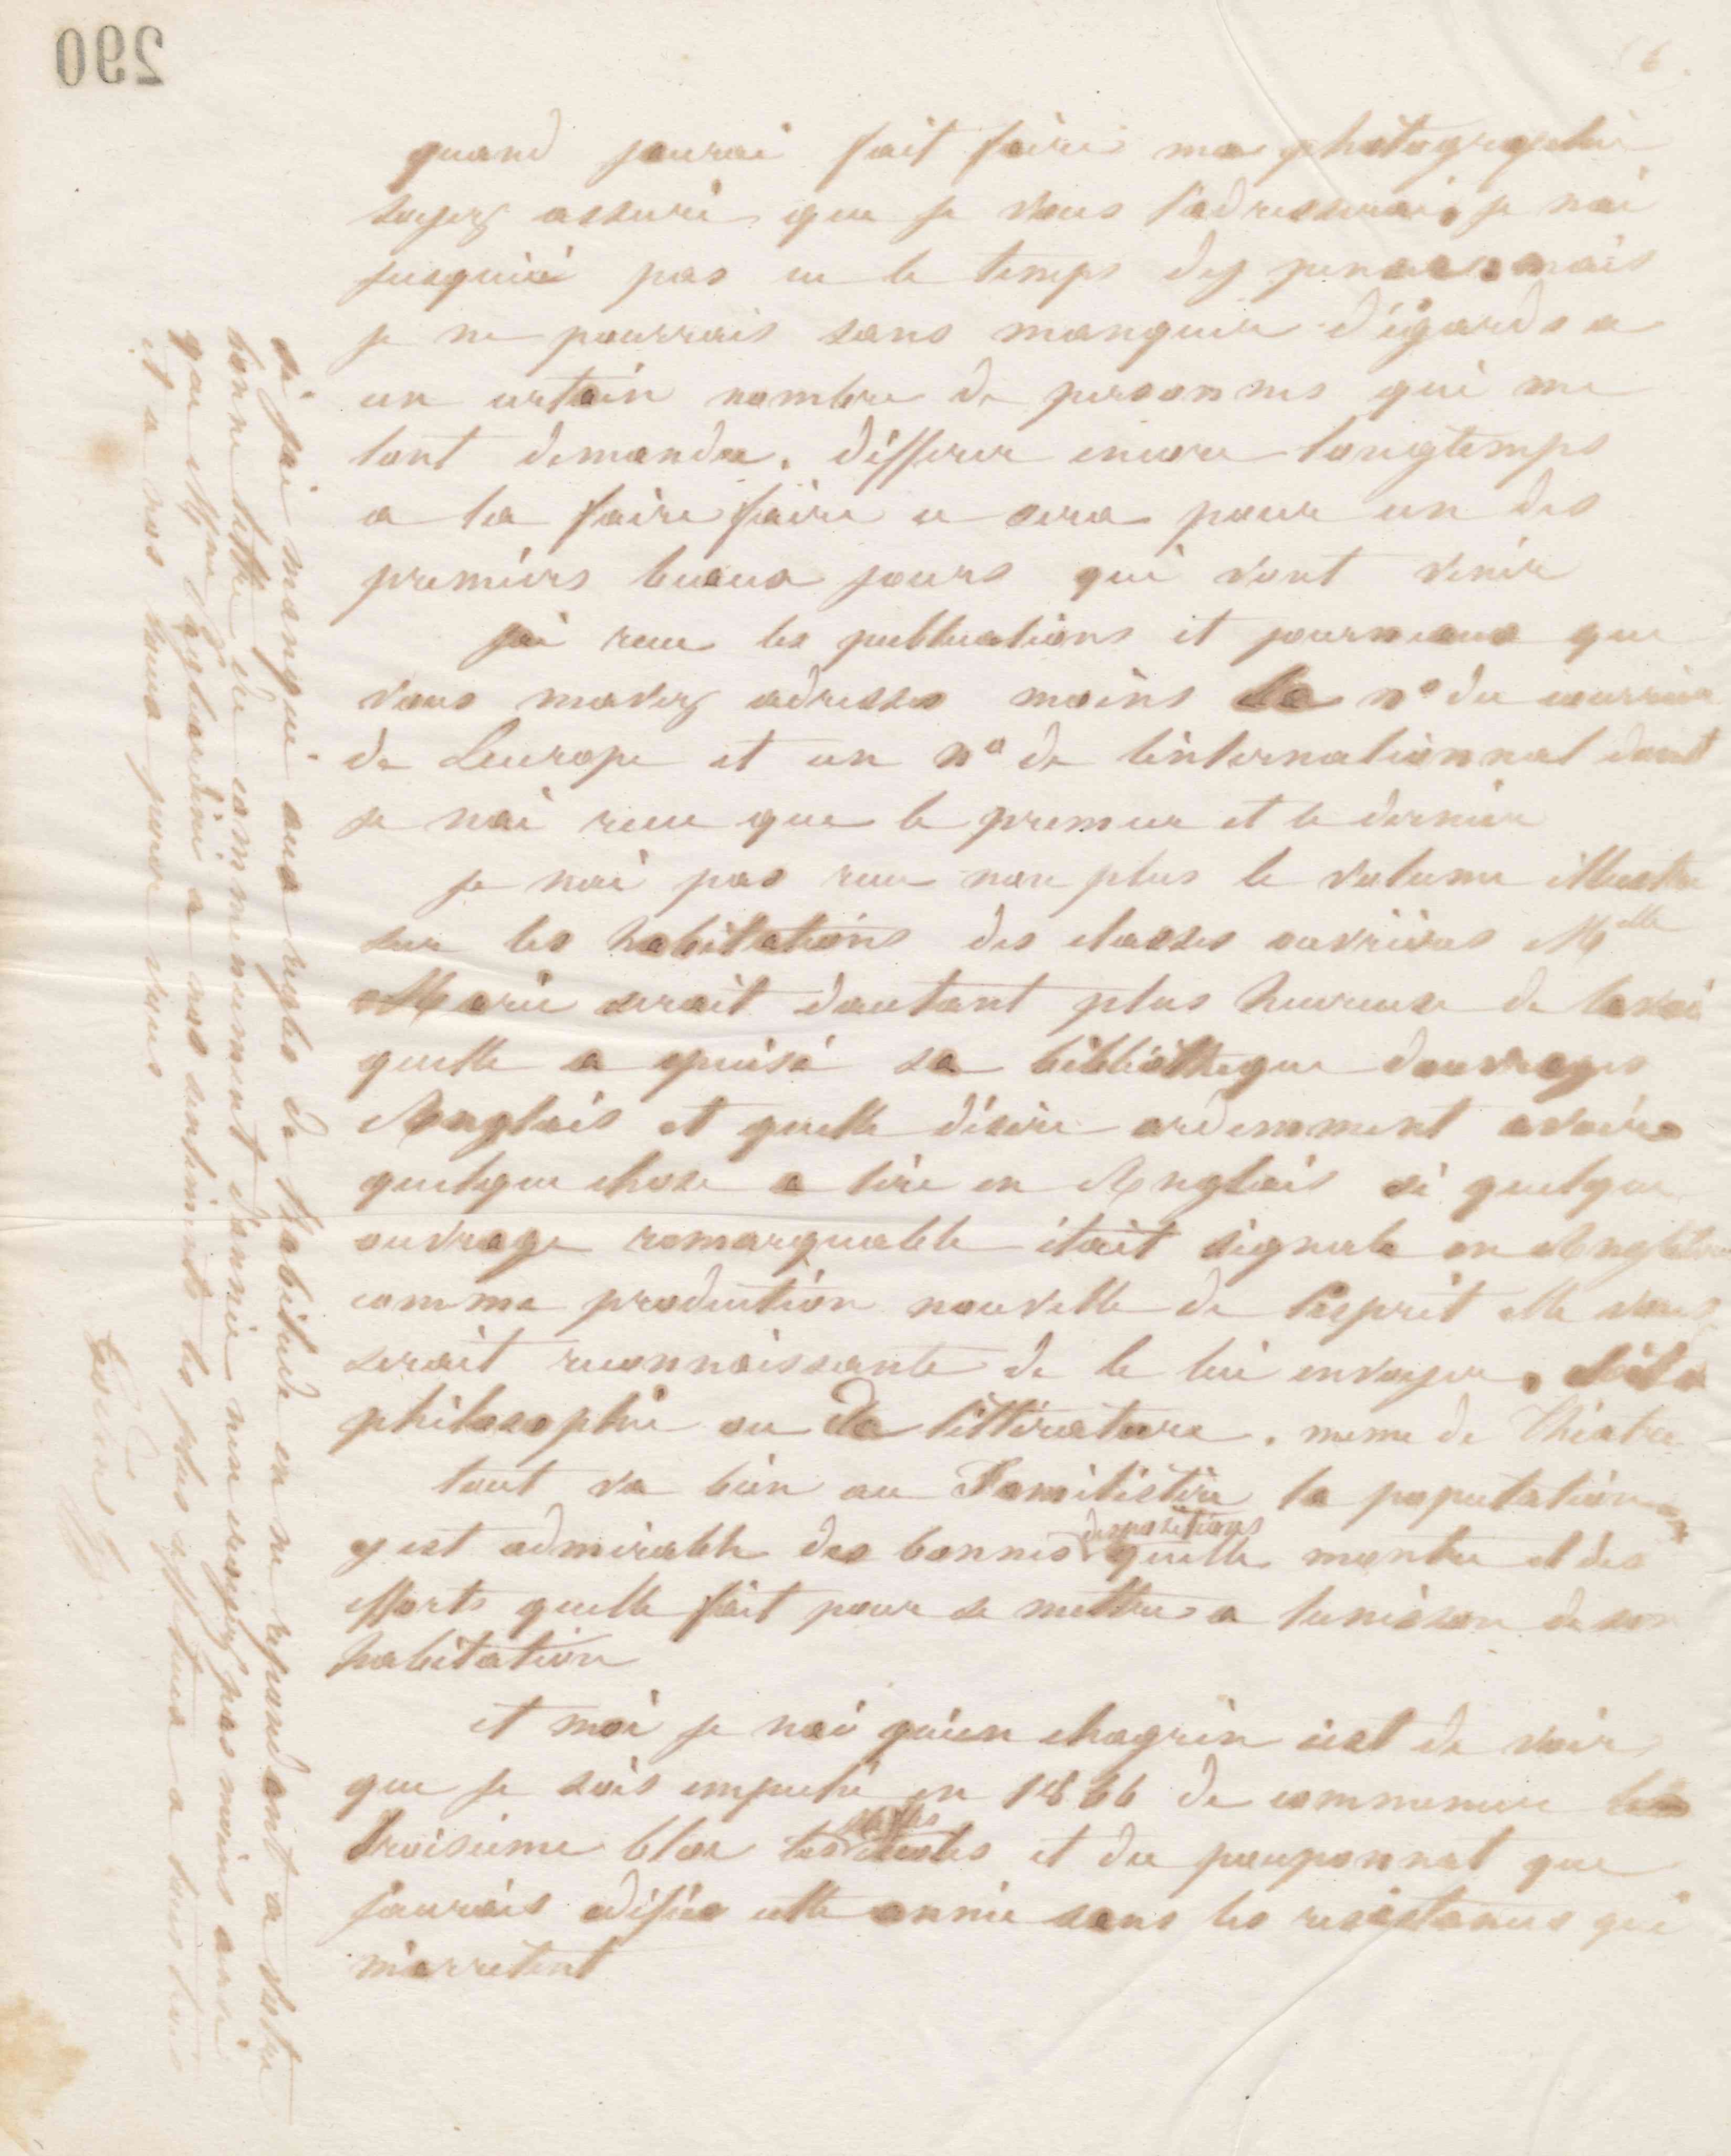 290
6
quand jaurai fait faire ma photographie
soyez assuré que je vous l'adresserai, je nai
jusquici pas eu le temps dy penser. mais
je ne pourrais sans manquer d'égards a
un certain nombre de personnes qui me
lont demandée. différer encore longtemps
a la faire faire ce sera pour un des
premiers beaux jours qui vont venir
jai recu les publications et journaux que
vous mavez adresses moins le no du courrier
de Leurope et un no de linternationnal dont
je nai recu que le premier et le dernier
je nai pas recu non plus le volume illustre
sur les habitations des classes ouvrieres Melle
Marie serait dautant plus heureuse de lavoi
quelle a épuisé sa bibliotheque douvrages
Anglais et quelle désire ardemment avoir
quelque chose a lire en Anglais si quelque
ouvrage remarquable était signale en Angleterre
comme production nouvelle de l'esprit elle vous
serait reconnaissante de le lui envoyer,
philosophie ou de littérature. meme de théatre
tout va bien au Familistère la population
y est admirable des bonnes dispositions quelle montre et des
efforts quelle fait pour se mettre a lunisson de son
habitation
et moi je nai quun chagrin cest de voir
que je sois empeché en 1866 de commencer
troisieme bloc les écoles et du pouponnat que
jaurais édifiés cette année sans les resistances qui
m'arretent
si jai manqué aux regles de l'habitude en ne repondant a votre
bonne lettre du commencement d'année nen croyez pas moins ami
que Mme Pagliardini a nos sentiments les plus affectueux a tous trois
et a nos vœux pour vous
Godin